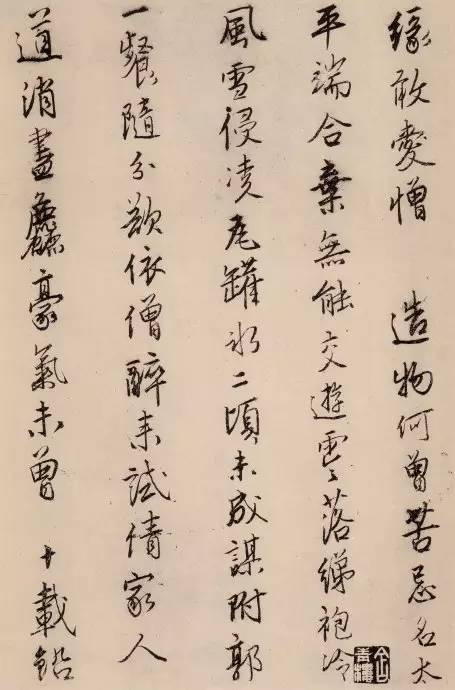 緣敢愛憎 造物何曾苦忌名太
平端合棄無能交遊落綈袍冷
風雪侵凌瓦罐冰二頃未成謀附郭
一餐隨分欲依僧醉來試倩家人
道消盡麤豪氣未曾 十載鉛